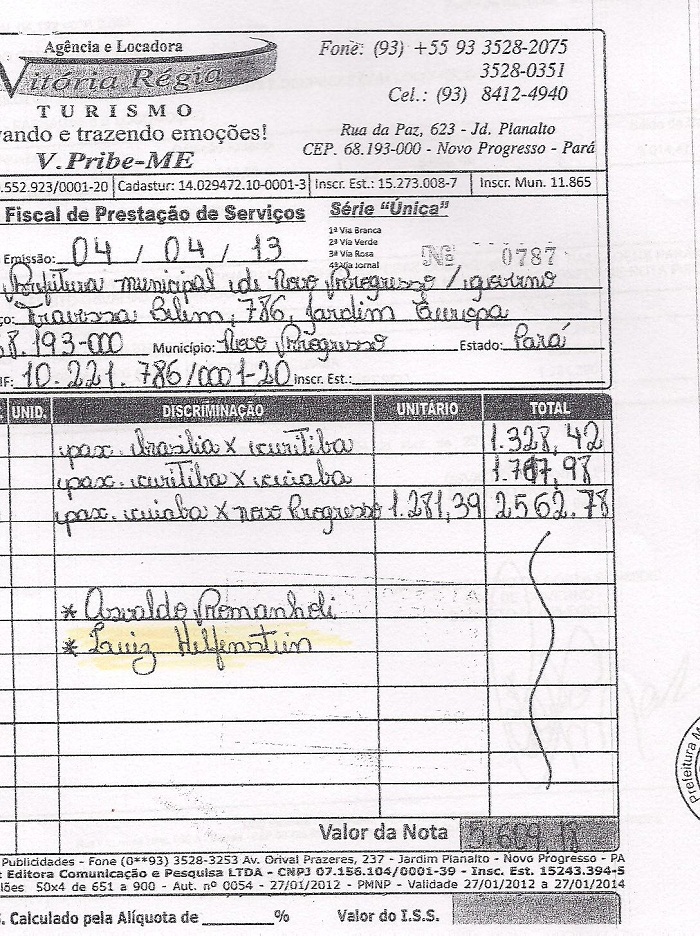 Agência e Locadora
Vitória Régia
TURISMO
vando e trazendo emoções!
V.Pribe-ME
Fone: (93) +55 93 3528-2075
3528-0351
Cel.: (93) 8412-4940
Rua da Paz, 623 - Jd. Planalto
CEP. 68.193-000 - Novo Progresso - Pará
.552.923/0001-20 Cadastur: 14.029472.10-0001-3 Inscr. Est.: 15.273.008-7 Inscr. Mun. 11.865
Fiscal de Prestação de Serviços
Série "Única"
1ª Via Branca
2ª Via Verde
3ª Via Rosa
4ª Via Jornal
Nº 0787
Emissão: 04 / 04 / 13
Prefeitura municipal de Novo Progresso / governo
ço: Travessa Belem, 786, Jardim Europa
68.193-000 Município: Novo Progresso Estado: Pará
IF: 10.221.786/0001-20 Inscr. Est.:
UNID. DISCRIMINAÇÃO UNITÁRIO TOTAL
pax. Brasilia x curitiba 1.328,42
pax. curitiba x cuiaba
pax. cuiaba x novo Progresso 1.281,39 2562.78
* Osvaldo Romanholi
* Luiz Helfenstein
Valor da Nota 5.609,18
Publicidades - Fone (0**93) 3528-3253 Av. Orival Prazeres, 237 - Jardim Planalto - Novo Progresso - PA
: Editora Comunicação e Pesquisa LTDA - CNPJ 07.156.104/0001-39 - Insc. Est. 15243.394-5
lões 50x4 de 651 a 900 - Aut. nº 0054 - 27/01/2012 - PMNP - Validade 27/01/2012 a 27/01/2014
S. Calculado pela Alíquota de %
Valor do I.S.S.
Prefeitura M